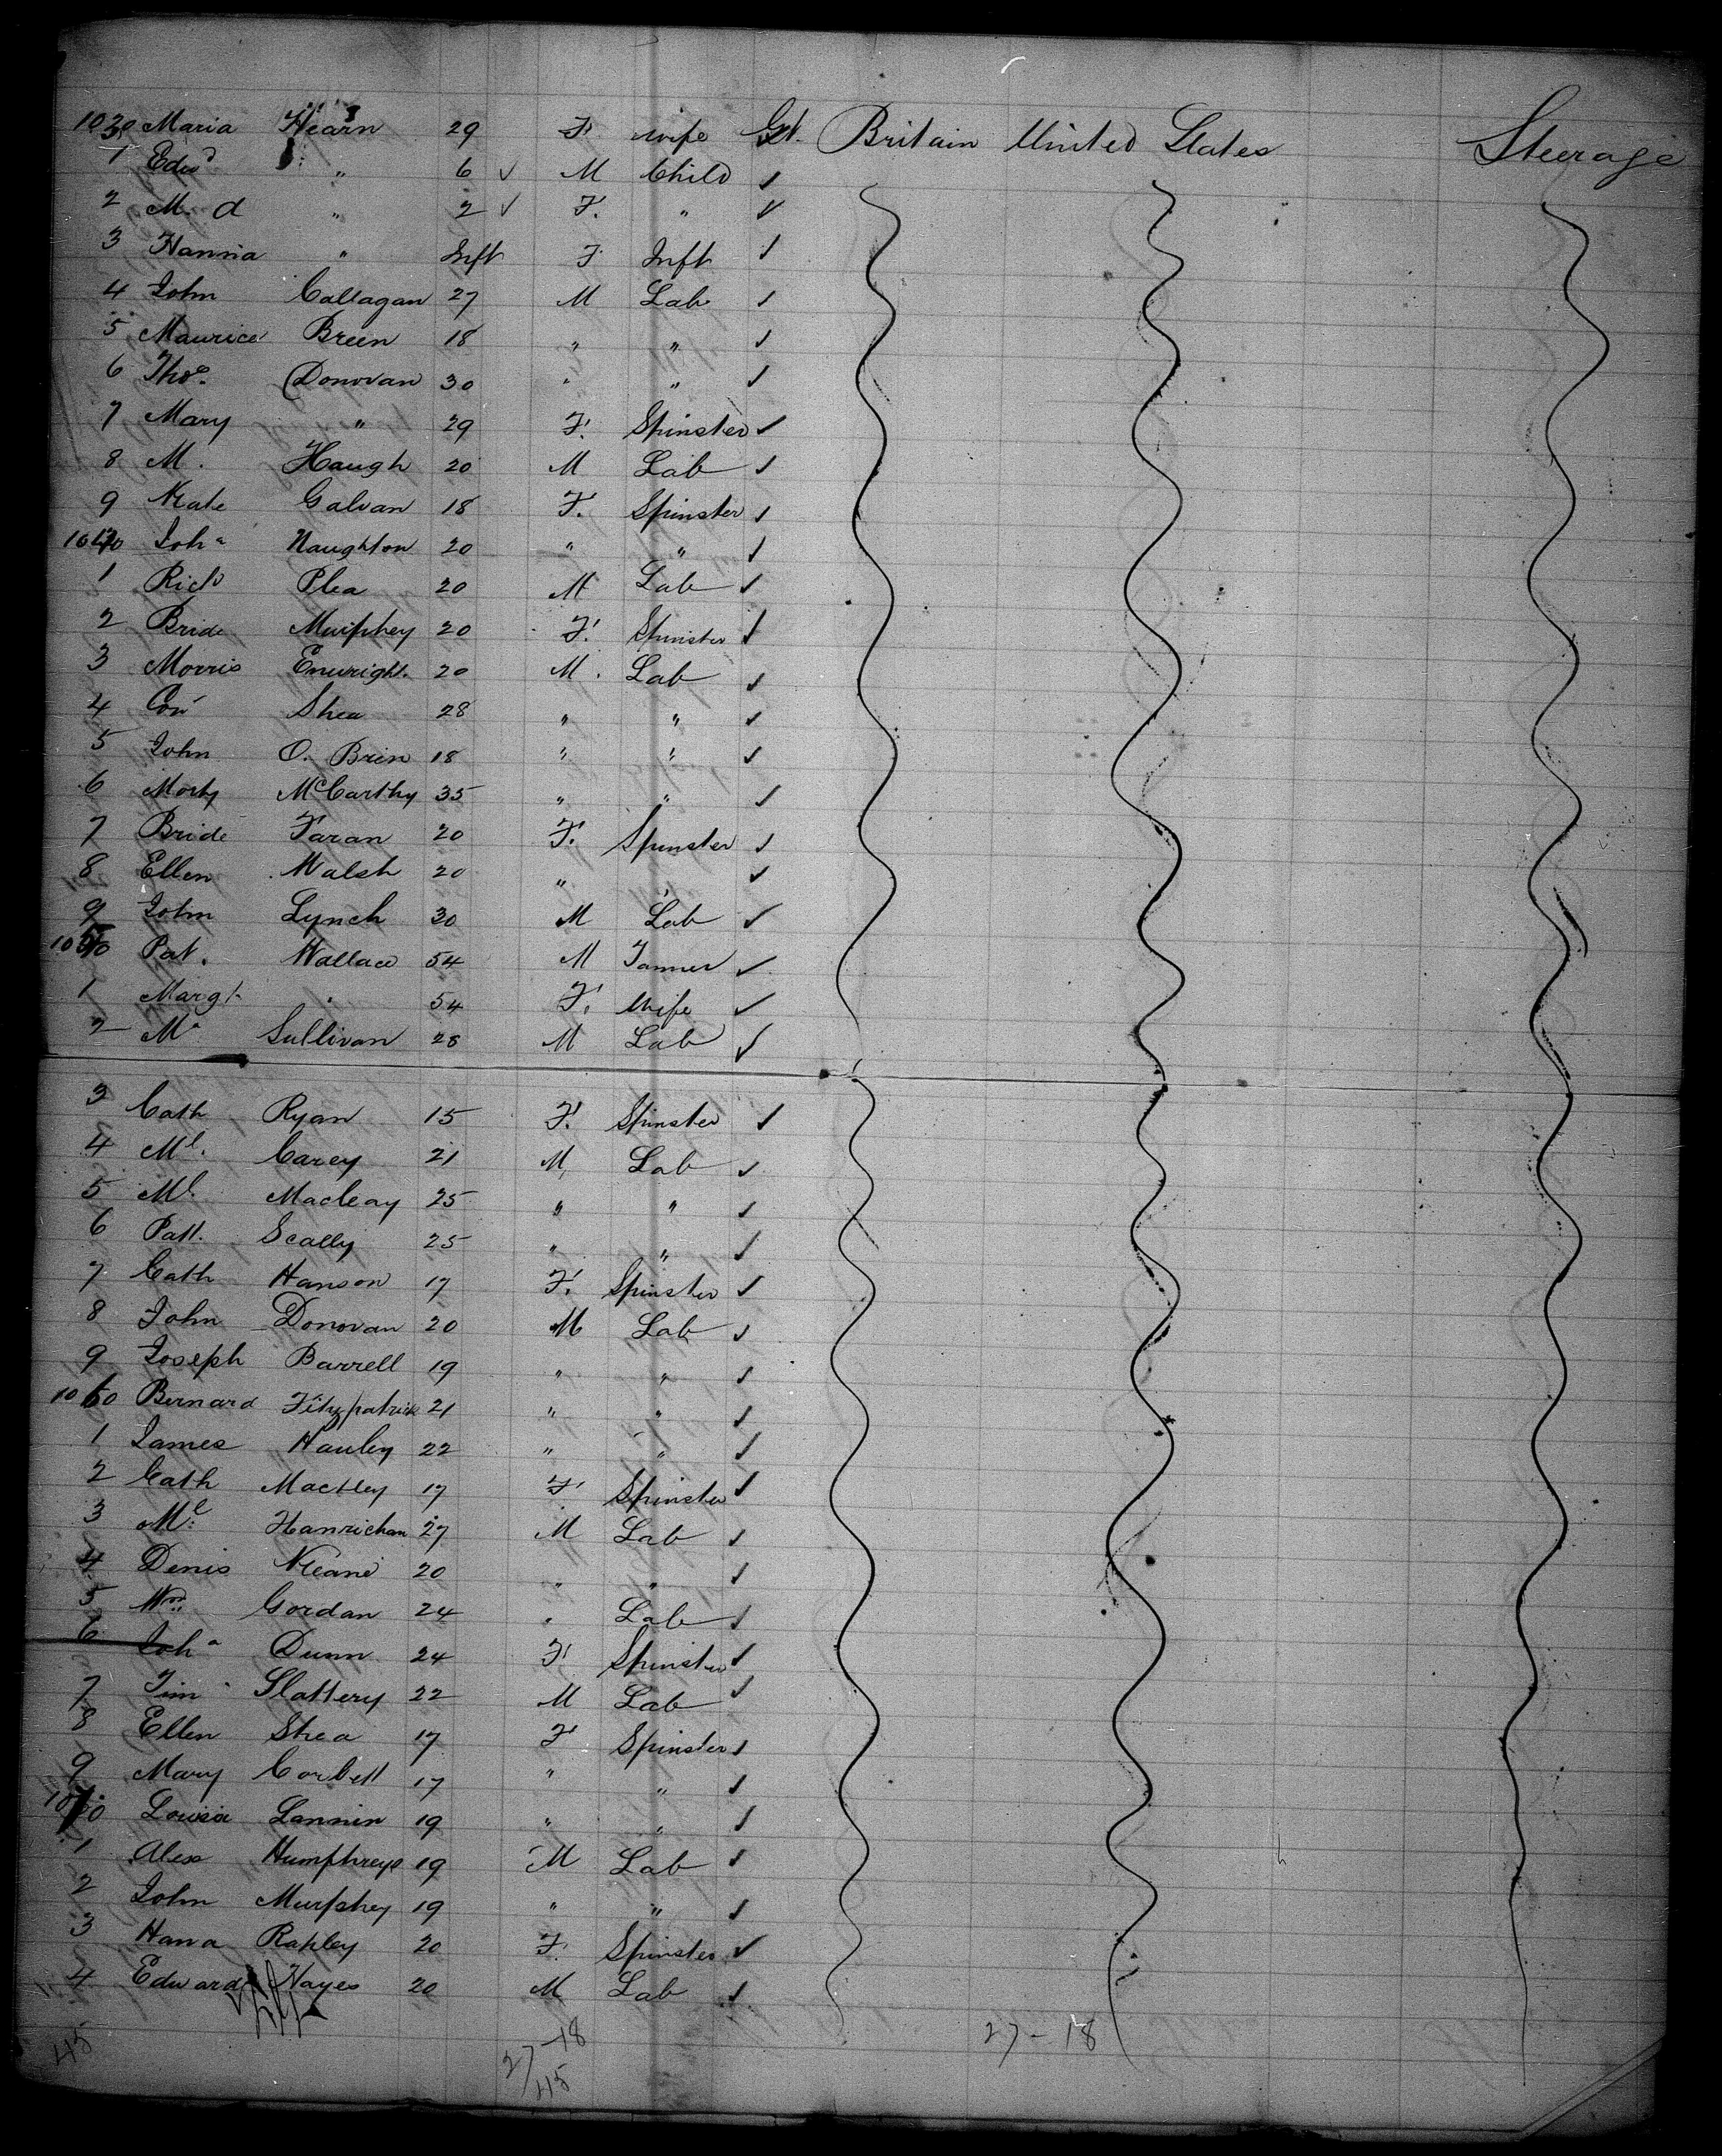 1030 Maria Hearn 29 F. wife Gt. Britain United States Steerage
1 Edwd " 6 ✓ M Child ✓
2 M. a " 2 ✓ F. " ✓
3 Hanna " Inft F Inft ✓
4 John Callagan 27 M Lab ✓
5 Maurice Breen 18 " " ✓
6 Thos. Donovan 30 " " ✓
7 Mary " 29 F. Spinster ✓
8 M. Haugh 20 M Lab ✓
9 Kate Galvan 18 F. Spinster ✓
1040 Joha Naughton 20 " " ✓
1 Richd Plea 20 M Lab ✓
2 Bride Murphey 20 F. Spinster ✓
3 Morris Enwright. 20 M. Lab ✓
4 Con Shea 28 " " ✓
5 John O. Brin 18 " " ✓
6 Morty McCarthy 35 " " ✓
7 Bride Faran 20 F. Spinster ✓
8 Ellen Walsh 20 " ✓
9 John Lynch 30 M Lab ✓
1050 Pat. Wallace 54 M Farmer ✓
1 Margt. " 54 F. Wife ✓
2 M Sullivan 28 M Lab ✓
3 Cath Ryan 15 F. Spinster ✓
4 Ml. Carey 21 M Lab ✓
5 Ml. Macleay 25 " " ✓
6 Patt. Scally 25 " " ✓
7 Cath Hanson 17 F. Spinster ✓
8 John Donovan 20 M Lab ✓
9 Joseph Barrell 19 " " ✓
1060 Bernard Fitzpatrick 21 " " ✓
1 James Hauley 22 " " ✓
2 Cath Mactley 17 F Spinster ✓
3 Ml. Hanrichan 27 M Lab ✓
4 Denis Keane 20 " " ✓
5 Wm. Gordan 24 " Lab ✓
6 Joha Dunn 24 F Spinster ✓
7 Tim Slattery 22 M Lab ✓
8 Ellen Shea 17 F Spinster ✓
9 Mary Corbett 17 " " ✓
1070 Louisa Lannin 19 " " ✓
1 Alex Humphreys 19 M Lab ✓
2 John Murphey 19 " " ✓
3 Hana Rahley 20 F. Spinster ✓
4 Edward Hayes 20 M Lab ✓
45 27-18 27-18
45